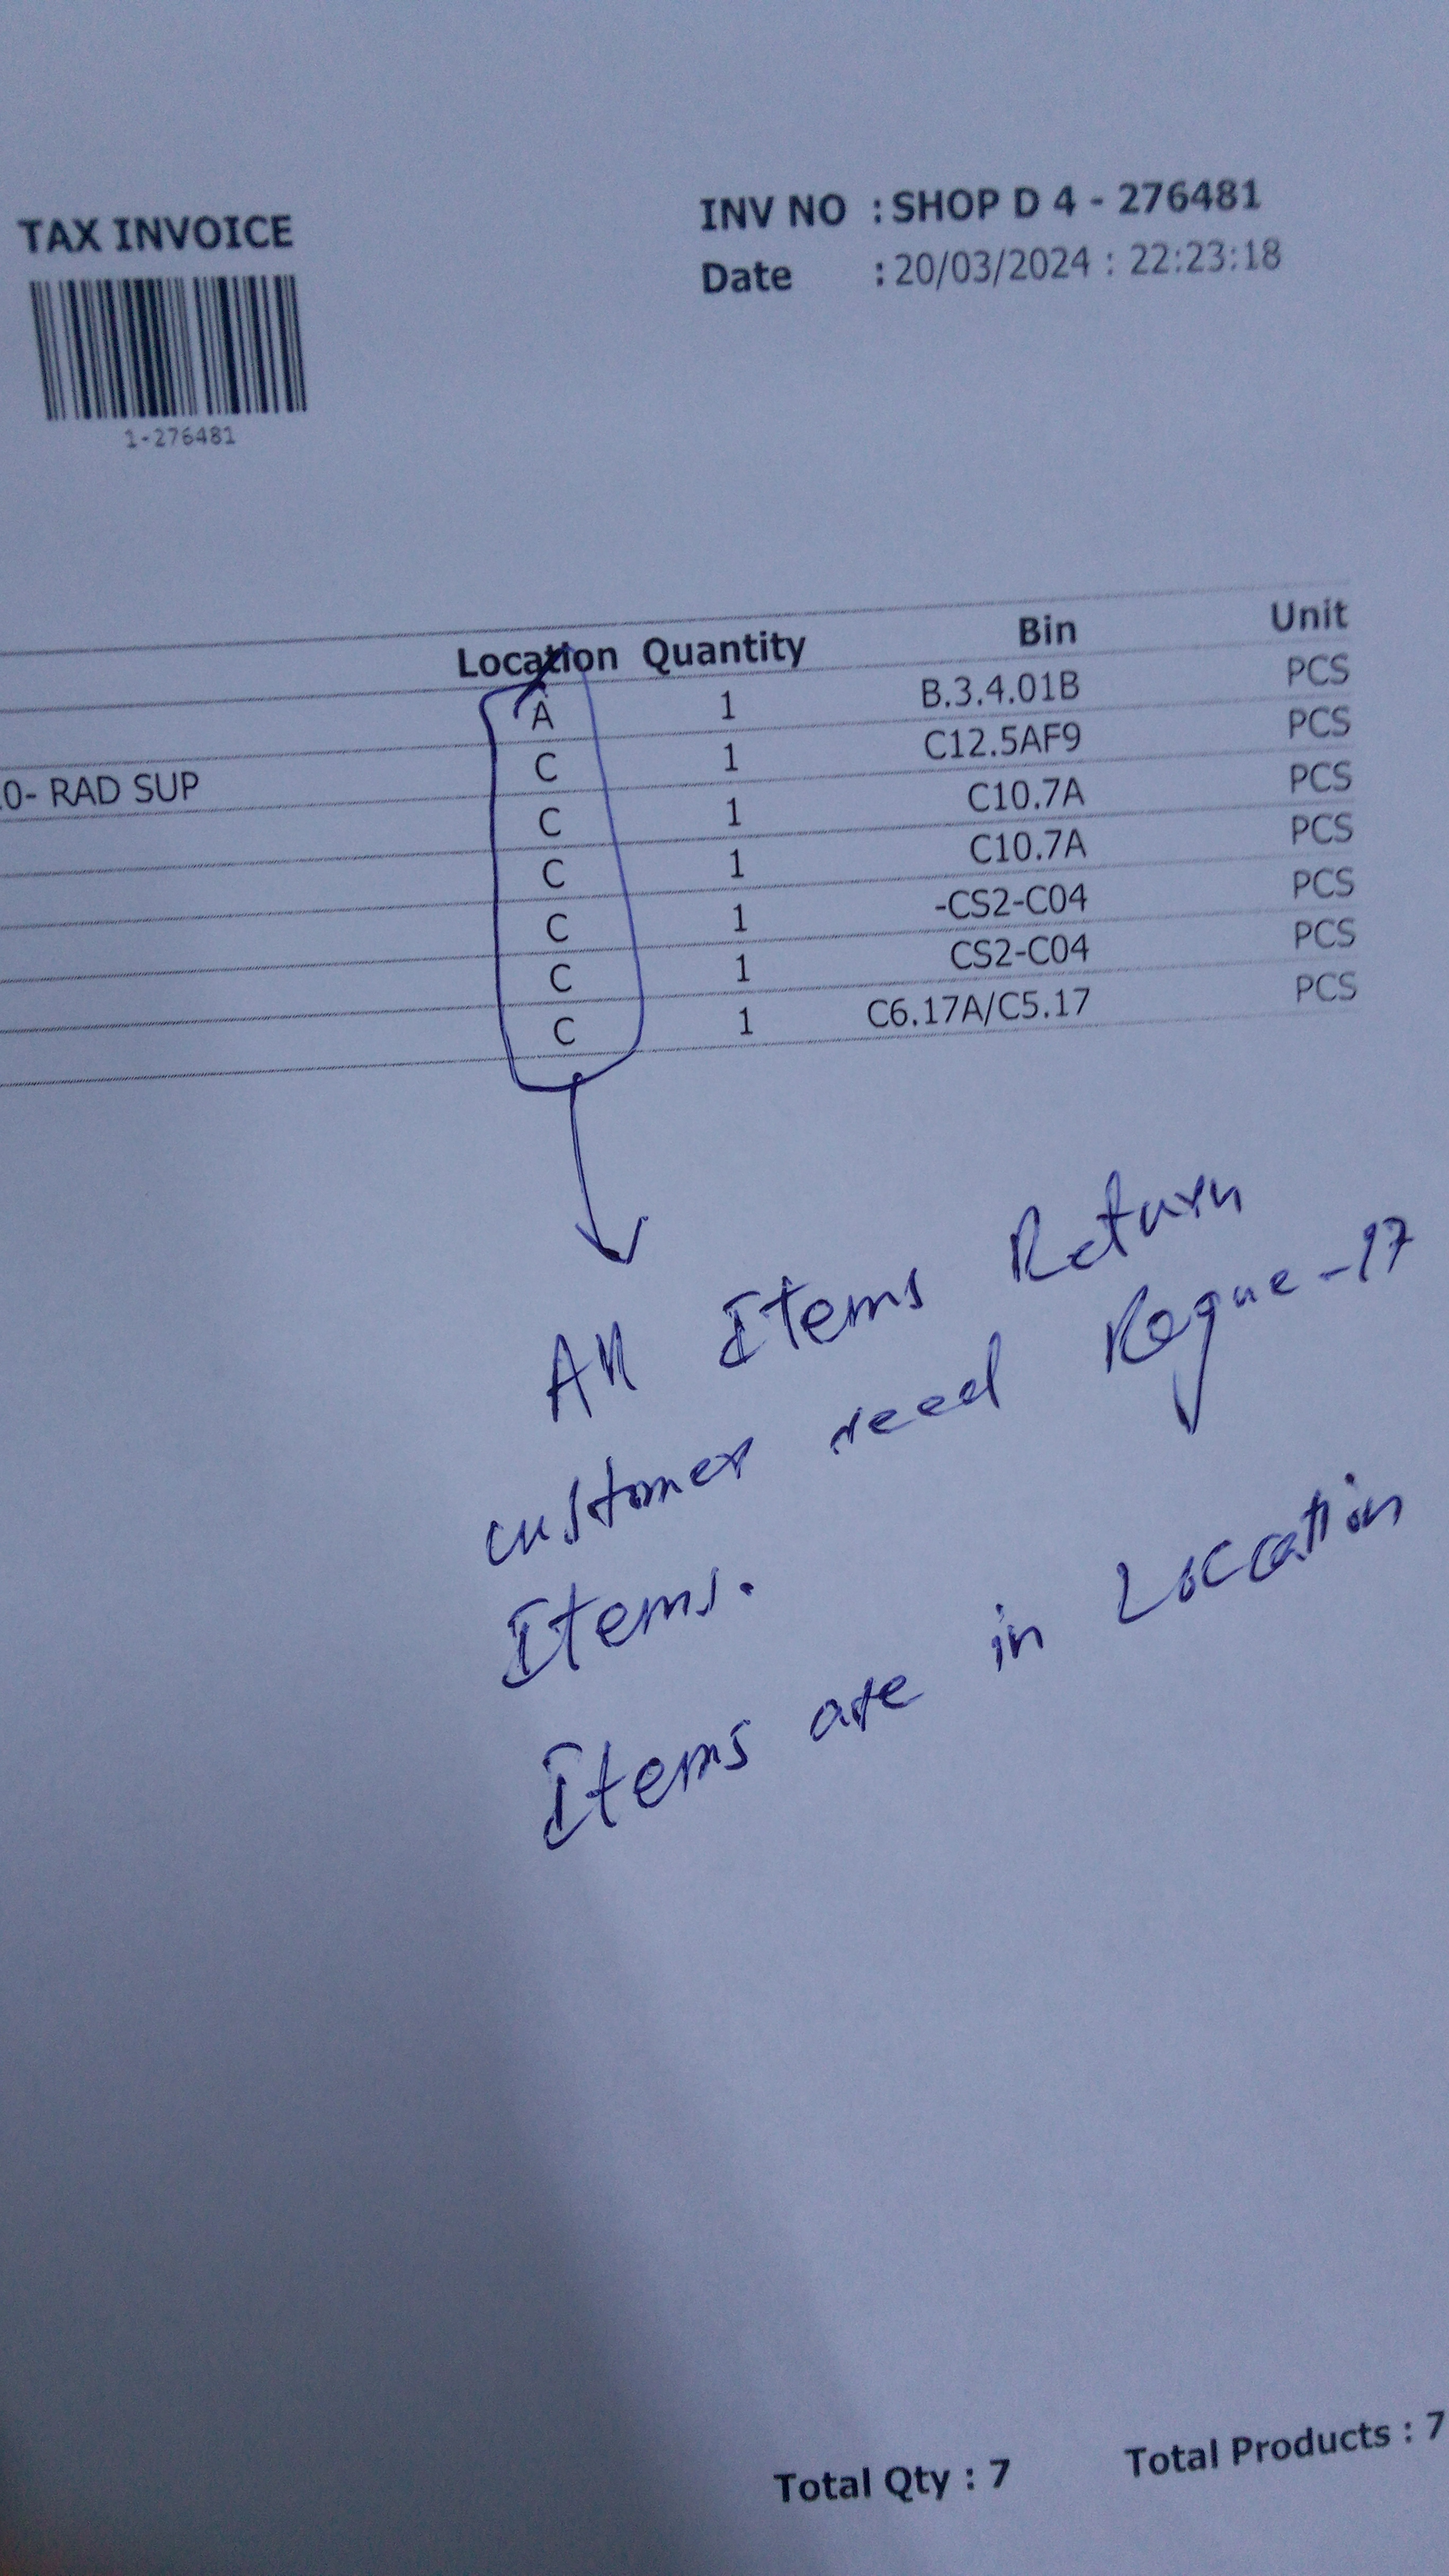 TAX INVOICE
INV NO : SHOP D 4 - 276481
Date : 20/03/2024 : 22:23:18
1-276481
Location Quantity Bin Unit
A 1 B.3.4.01B PCS
0- RAD SUP C 1 C12.5AF9 PCS
C 1 C10.7A PCS
C 1 C10.7A PCS
C 1 -CS2-C04 PCS
C 1 CS2-C04 PCS
C 1 C6.17A/C5.17 PCS
All Items Return
customer need Rogue-17
Items.
Items are in Location
Total Qty : 7 Total Products : 7